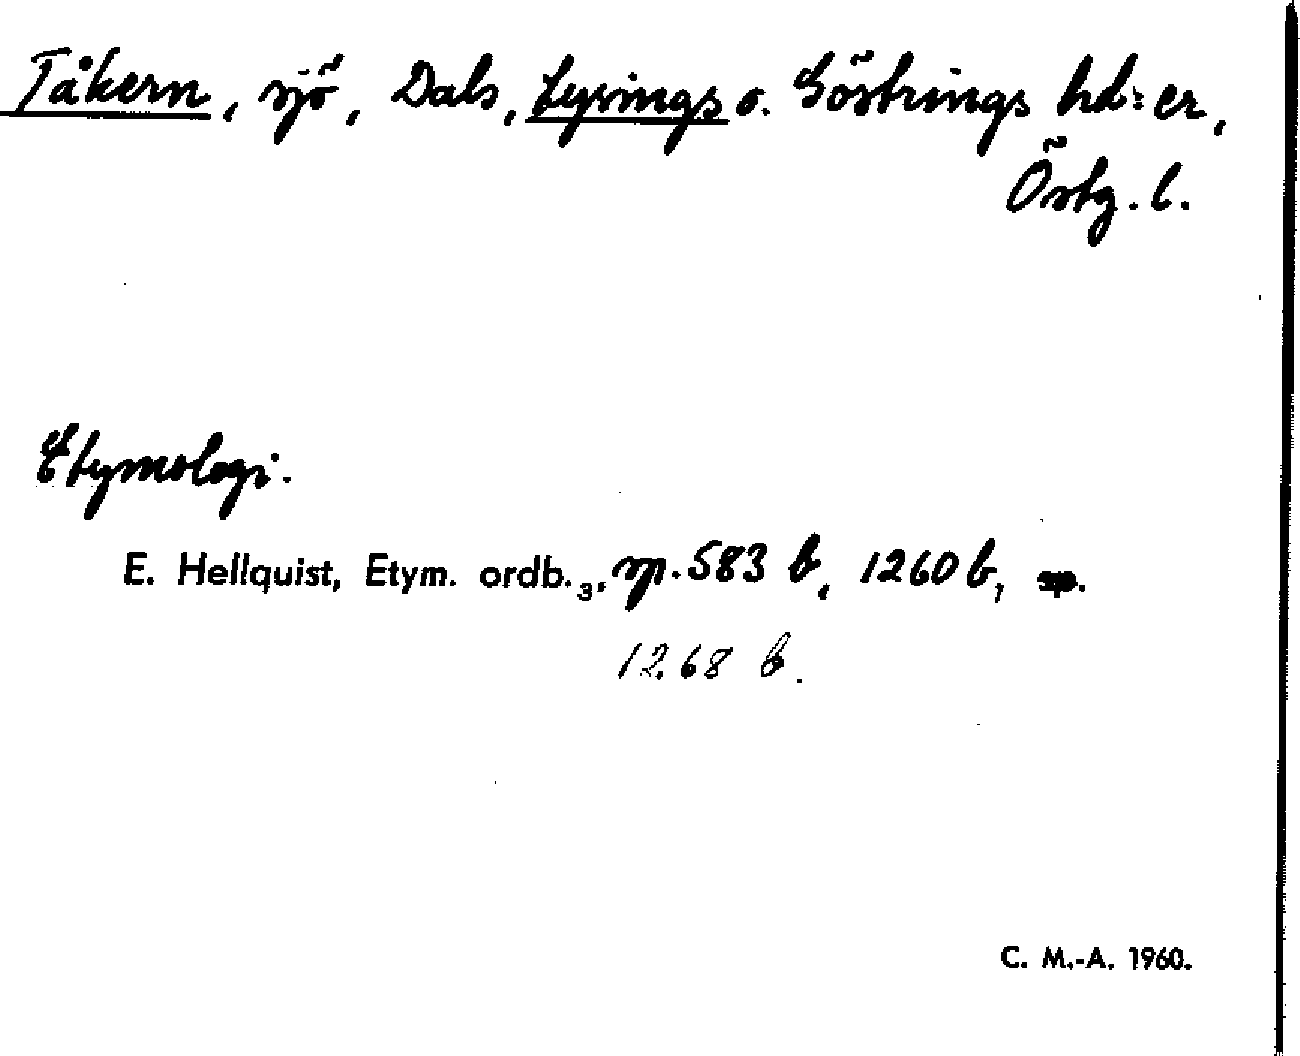 Tåkern, sjö, Dals, Lysings o. Göstrings hd:er,
Östg. l.
Etymologi.
E. Hellquist, Etym. ordb.3, sp. 583 b, 1260 b, sp.
1268 b.
C. M.-A. 1960.